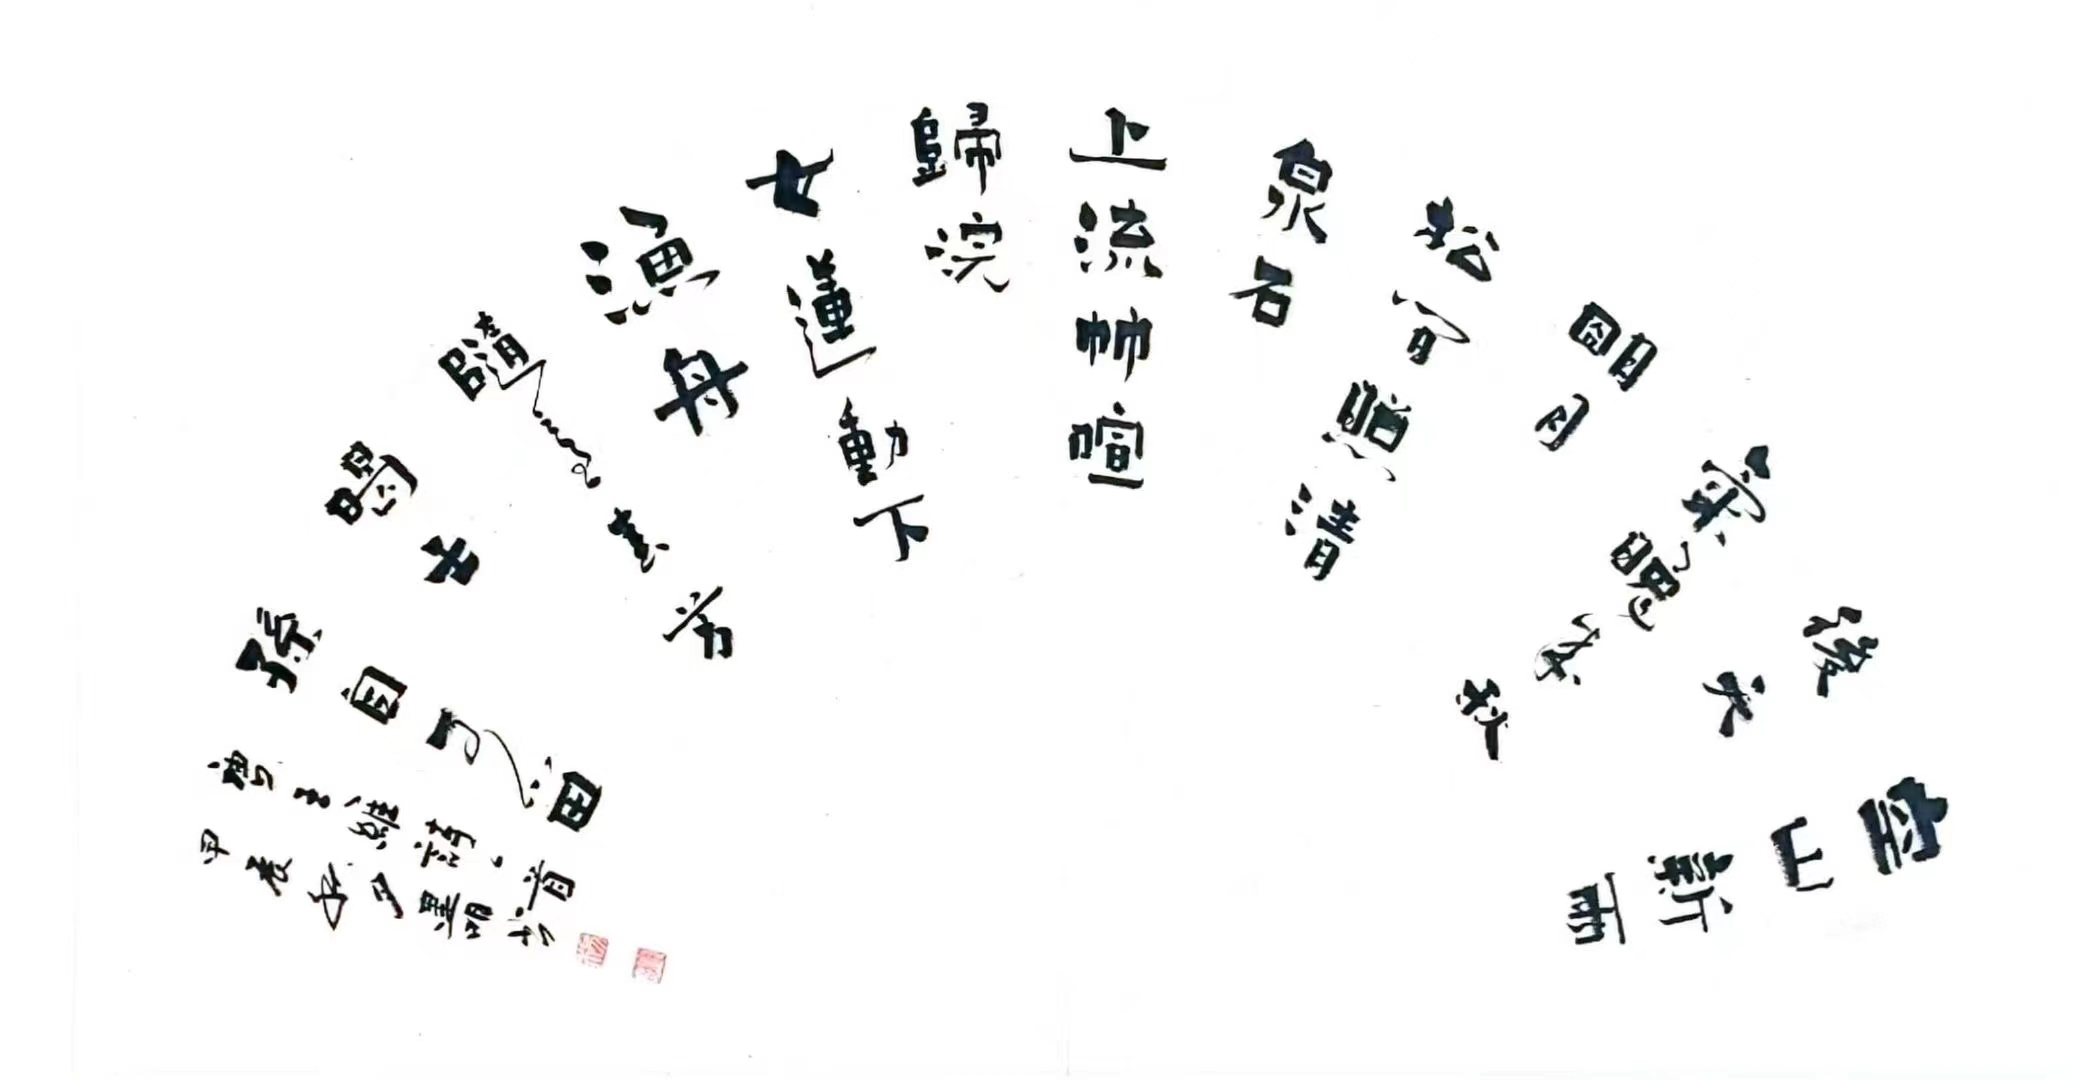 空山新雨
後天
氣晚來秋
明月
松間照清
泉石
上流竹喧
歸浣
女蓮動下
漁舟
隨意春芳
歇王
孫自可留
錄王維詩一首
甲辰